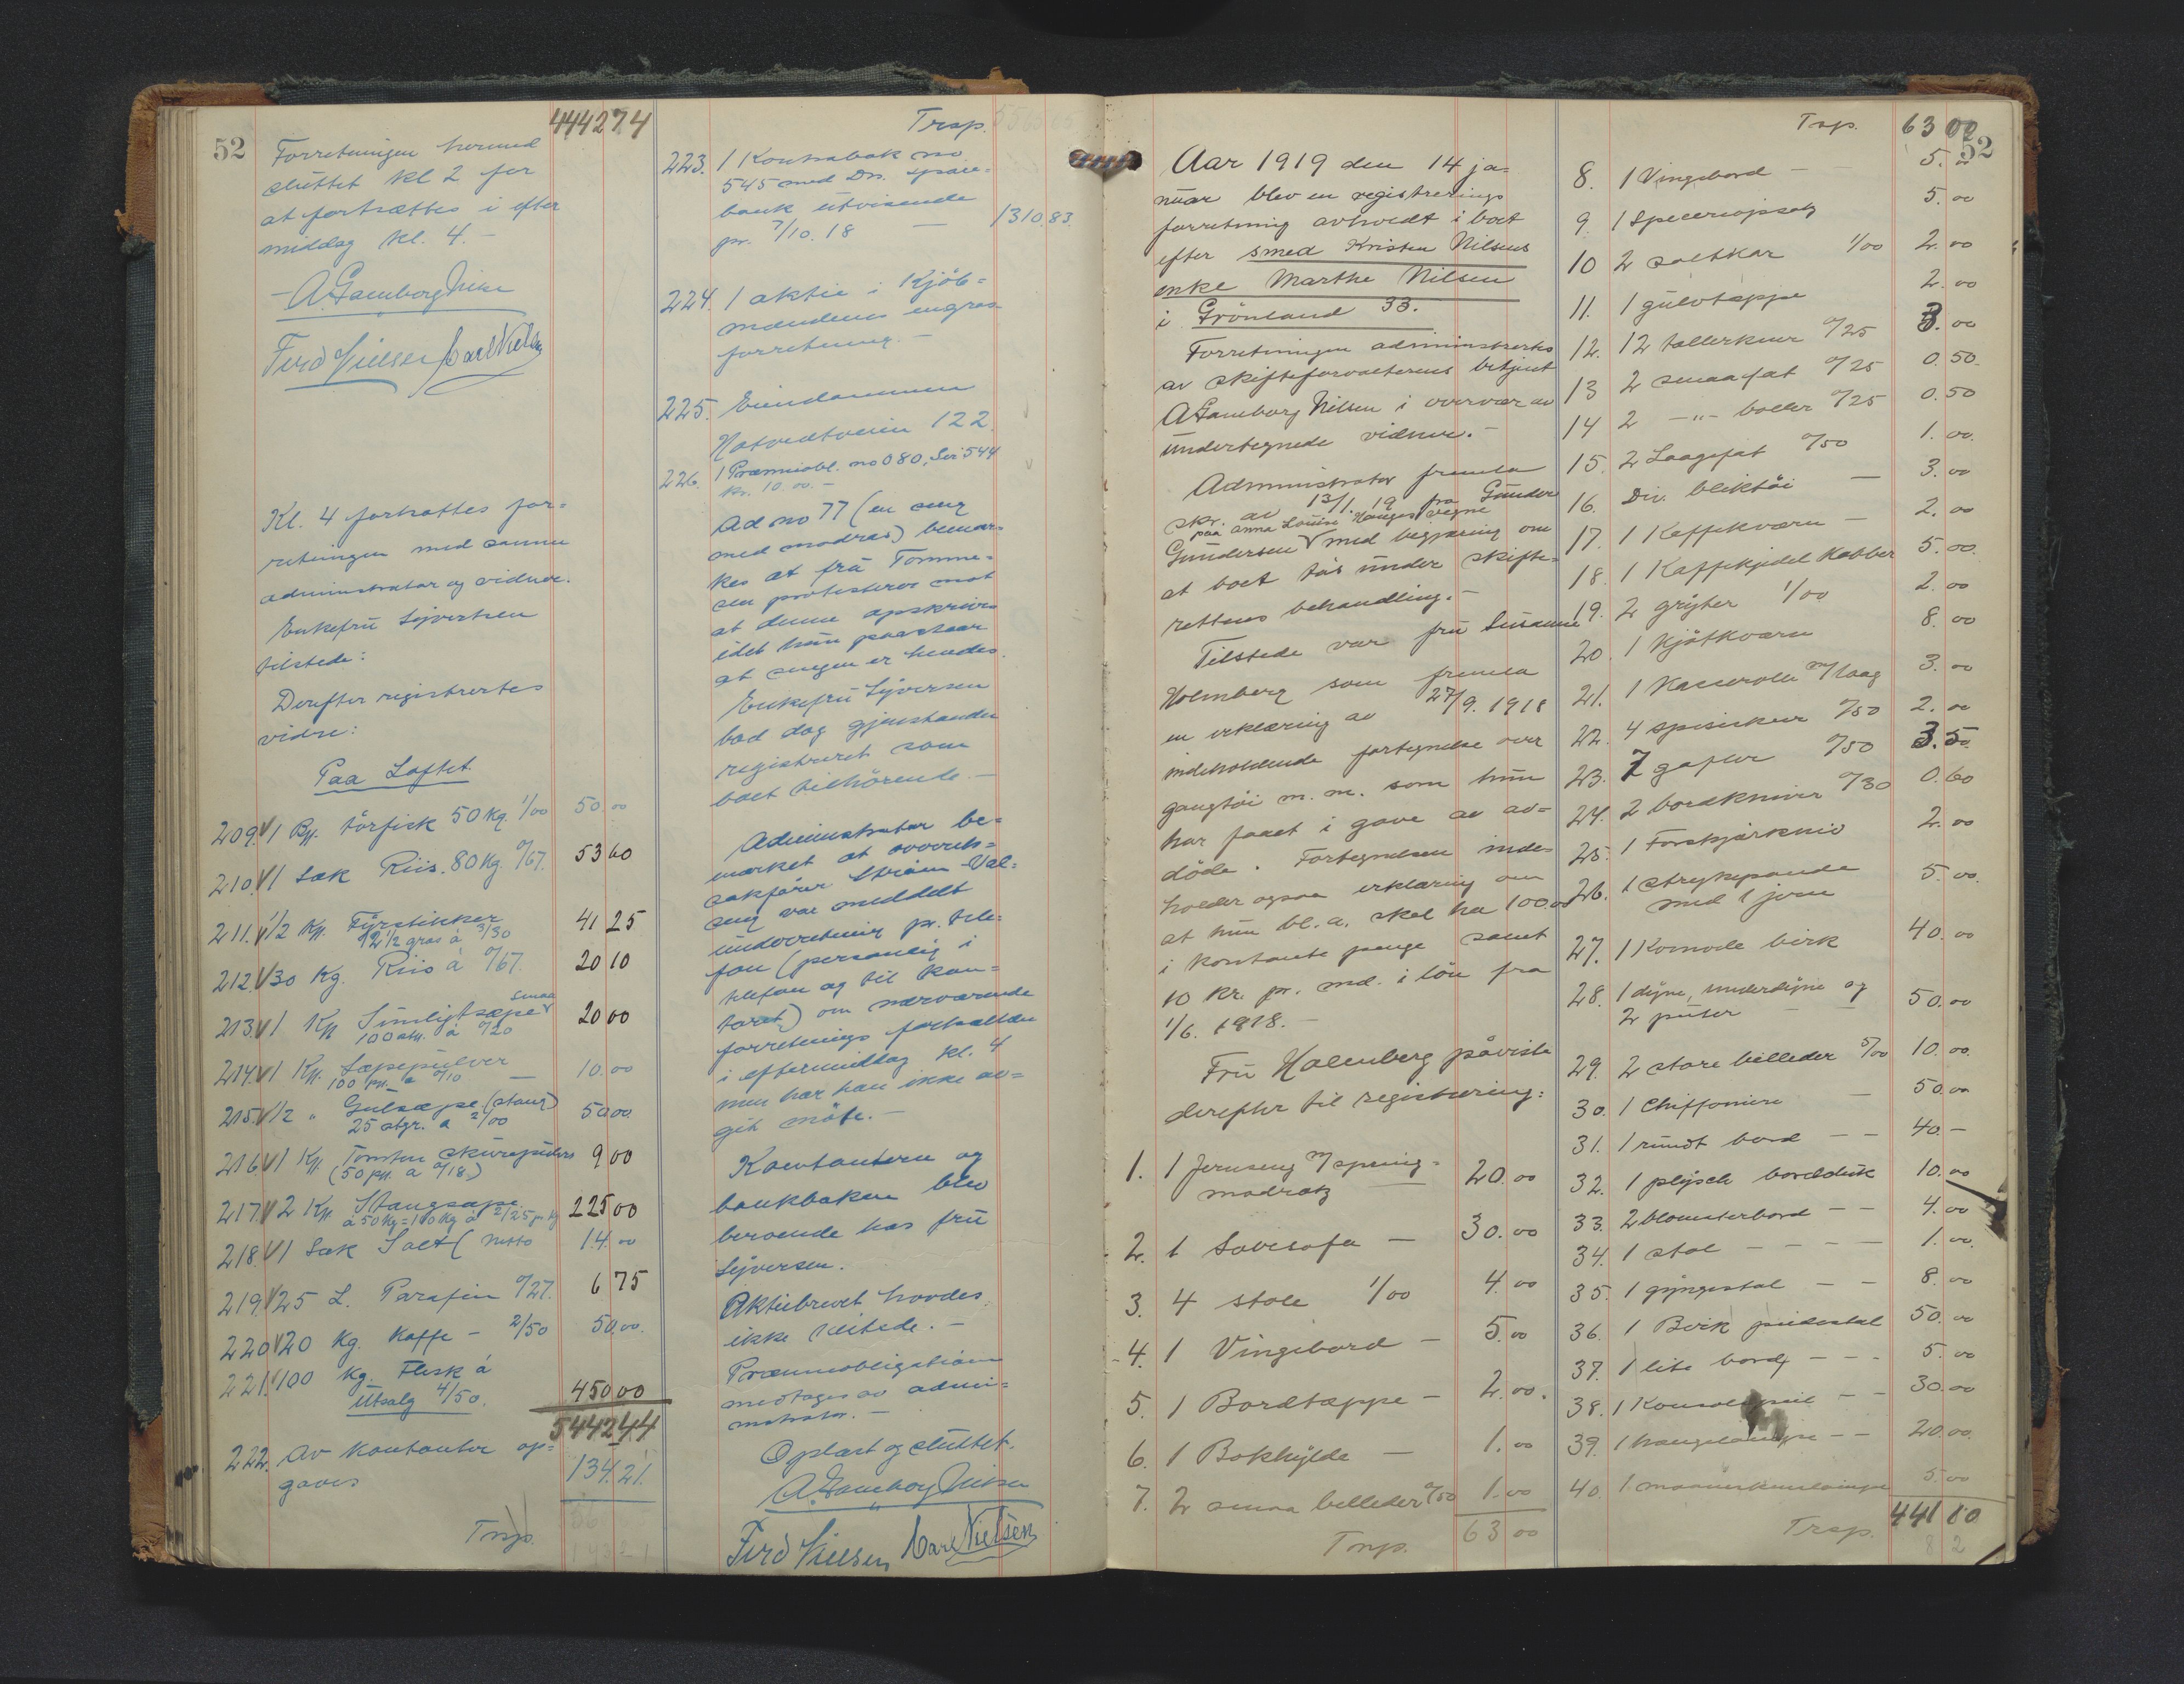 52
4442 74
Forretningen hermed
sluttet kl 2 for
at fortsættes i efter
middag kl. 4.-
A. Gamborg Nilsen
Ferd Nielsen Carl Nielsen
Kl. 4 fortsattes for-
retningen med samme
administrator og vidner.
Enkefru Syvertsen
tilstede:
Derefter registrertes
videre:
Paa Loftet
209. 1 Bt. törfisk 50 kg. 1/00 50.00
210. 1 Sæk Riis. 80 Kg. 0/67. 53 60
211. 1/2 Ks. Fyrstikker
12 1/2 gros à 3/30 41 25
212. 30 Kg. Riis à 0/67. 20 10
213. 1 Ks Sunligtsæpe smaa
100 stk. à 0/20 20 00
214. 1 Ks. Sæpepulver
100 pk. a 0/10 — 10.00
215. 1/2 " Gulsæpe (stang)
25 stgr. a 2/00 50.00
216. 1 Ks. Tomten skurepulver
(50 pk. a 0/18) 9 00
217. 2 Ks. Stangsæpe
à 50 Kg = 100 Kg à 2/25 pr kg 225 00
218. 1 Sæk Salt ( netto 14.00
219. 25 L. Parafin 0/27. 6 75
220. 20 kg. Kaffe - 2/50 50.00.
221. 100 kg. Flesk á
Utsalg 4/50. 450 00
5442 44
222. Av kontanter op-
gaves 134.21.
Trsp.
Trsp.
223. 1 Kontrabok no
545 med Drs. spare-
bank utvisende
pr. 7/10. 18 — 1310.83
224. 1 aktie i Kjöb-
mændenes engros
forretning. -
225. Eiendommen
Hotvedtveien 122.
226. 1 Præmieobl. no 080, Ser 544
kr. 10.00.-
Ad no 77 (en seng
med madras) bemær-
kes at fru Tomme-
sen protesterer mot
at denne opskrives
idet hun paastaar
at sengen er hendes.
Enkefru Syversen
bad dog gjenstanden
registreret som
boet tilhörende. -
Administrator be-
merket at overrets-
sakförer Ström-Val-
seng var meddelt
underretning pr. tele-
fon (personlig i
telefon og til kon-
toret) om nærværende
forretnings fortsættelse
i eftermiddag kl. 4
men har han ikke av-
git möte. -
Kontanterne og
bankboken blev
beroende hos fru
Syversen.
Aktiebrevet havdes
ikke tilstede. -
Præmieobligationen
medtages av admi-
nistrator. -
Oplæst og sluttet.
A. Gamborg Nilsen
Ferd Nielsen Carl Nielsen
Aar 1919 den 14 ja-
nuar blev en registrerings
forretning avholdt i boet
efter smed Kristen Nilsens
enke Marthe Nilsen
i Grönland 33.
Forretningen administrertes
av skifteforvalterens betjent
A Gamborg Nilsen i overvær av
undertegnede vidner. -
Administrator fremla
skr. av 13/1. 19 fra Gunder
paa Anna Louise Hauges vegne
Gundersen med begjæring om
at boet tas under skifte-
rettens behandling. -
Tilstede var fru Susanne
Holmberg som fremla
en erklæring av 27/9. 1918
indeholdende fortegnelse over
gangtöi m. m. som hun
har faaet i gave av av-
döde. Fortegnelsen inde-
holder ogsaa erklæring om
at hun bl. a. skal ha 100.00
i kontante penge samt
10 kr. pr. md. i lön fra
1/6. 1918. -
Fru Holmberg paaviste
derefter til registrering:
1. 1 Jernseng m/spring-
madratz 20.00
2. 1 Sovesofa — 30.00
3. 4 stole 1/00 4.00
4. 1 Vingebord — 5.00
5. 1 Bordtæppe — 2.00.
6. 1 Bokhylde — 1.00
7. 2 smaa billeder 0/50 1.00
Trsp. 63 00
Trsp. 63 00
52
8. 1 Vingebord — 5.00
9. 1 Speceriopsats 5.00
10 2 saltkar 1/00 2.00
11. 1 gulvtæppe 2.00
12. 12 tallerkener 0/25 3.00
13 2 smaa fat 0/25 0.50
14 2 -"- boller 0/25 0.50
15. 2 Laagefat 0/50 1.00.
16. Div. bliktöi — 3.00
17. 1 Kaffekværn — 2.00
18. 1 Kaffekjedel Kobber 5.00.
19. 2 gryter 1/00 2.00
20. 1 Kjötkværn 8.00
21. 1 Kasserolle m/laag 3.00
22. 4 spiseskeer 0/50 2.00
23. 7 gafler 0/50 3.50
24. 2 bordkniver 0/30 0.60
25. 1 Forskjærkniv 2.00
26. 1 strykepande
med 1 jern 5.00.
27. 1 Komode birk 40.00
28. 1 dyne, underdyne og
2 puter — — 50.00
29. 2 store billeder 5/00 10.00.
30. 1 Chiffoniere — 50.00
31. 1 rundt bord — — 40.—
32. 1 plysch bordduk 10.00
33. 2 blomsterbord — — 4.00
34. 1 stol — — — — 1.00.
35. 1 gyngestol — — 8.00
36. 1 Birk pidestal 50.00
37. 1 lite bord — — — 5.00
38. 1 Konsolspeil — — 30.00
39. 1 hængelampe — — 20.00.
40. 1 maaneskinslampe 5.00
Trsp. 441 10